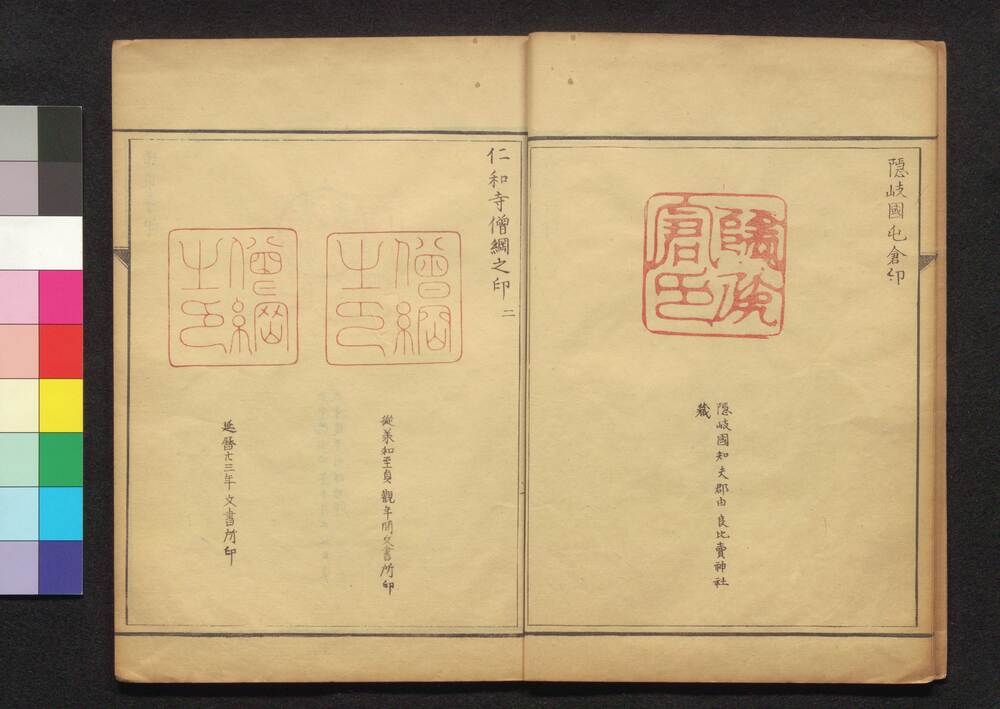 隠岐國屯倉印
隠岐倉印
隠岐國知夫郡由良比賣神社
藏
仁和寺僧綱之印 二
僧綱之印
從義和至貞觀年間文書所印
僧綱之印
延曆廿三年文書所印